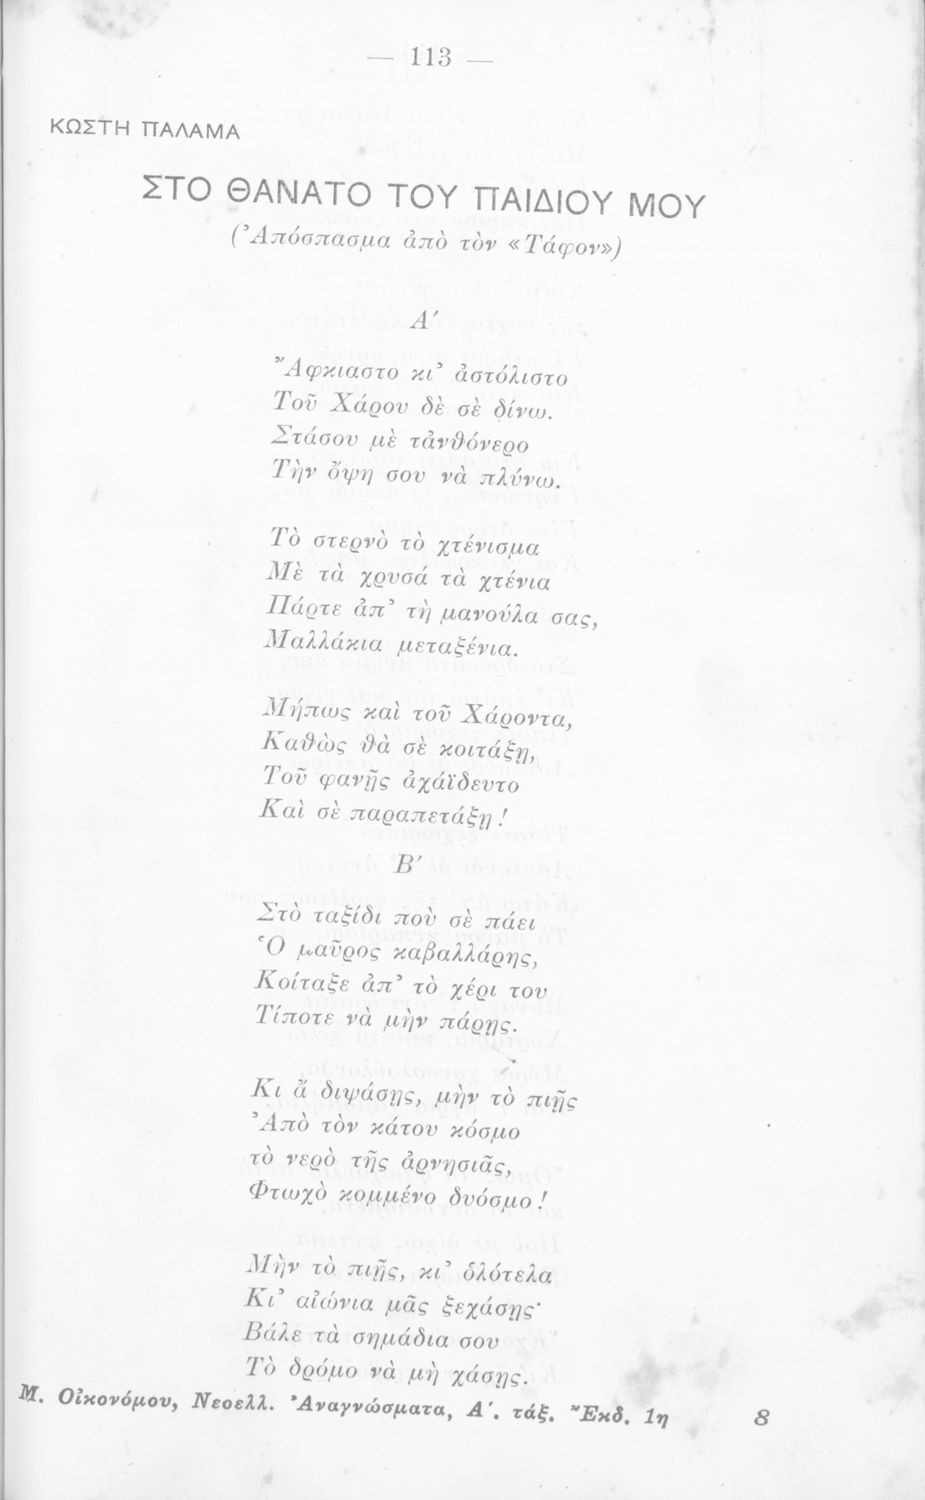 — 113 —
ΚΩΣΤΗ ΠΑΛΑΜΑ
ΣΤΟ ΘΑΝΑΤΟ ΤΟΥ ΠΑΙΔΙΟΥ ΜΟΥ
(Ἀπόσπασμα ἀπὸ τὸν «Τάφον»)
Α′
Ἄφκιαστο κι’ ἀστόλιστο
Τοῦ Χάρου δὲ σὲ δίνω.
Στάσου μὲ τἀνθόνερο
Τὴν ὄψη σου νὰ πλύνω.
Τὸ στερνὸ τὸ χτένισμα
Μὲ τὰ χρυσά τὰ χτένια
Πάρτε ἀπ’ τὴ μανούλα σας,
Μαλλάκια μεταξένια.
Μήπως καὶ τοῦ Χάροντα,
Καθὼς θὰ σὲ κοιτάξῃ,
Τοῦ φανῇς ἀχάϊδευτο
Καὶ σὲ παραπετάξῃ!
Β′
Στὸ ταξίδι ποὺ σὲ πάει
Ὁ μαῦρος καβαλλάρης,
Κοίταξε ἀπ’ τὸ χέρι του
Τίποτε νὰ μὴν πάρῃς.
Κι ἂ διψάσῃς, μὴν τὸ πιῇς
Ἀπὸ τὸν κάτου κόσμο
τὸ νερὸ τῆς ἀρνησιᾶς,
Φτωχὸ κομμένο δυόσμο!
Μὴν τὸ πιῇς, κι’ ὁλότελα
Κι’ αἰώνια μᾶς ξεχάσῃς·
Βάλε τὰ σημάδια σου
Τὸ δρόμο νὰ μὴ χάσῃς.
Μ. Οἰκονόμου, Νεοελλ. Ἀναγνώσματα, Α′. τάξ. Ἔκδ. 1η 8